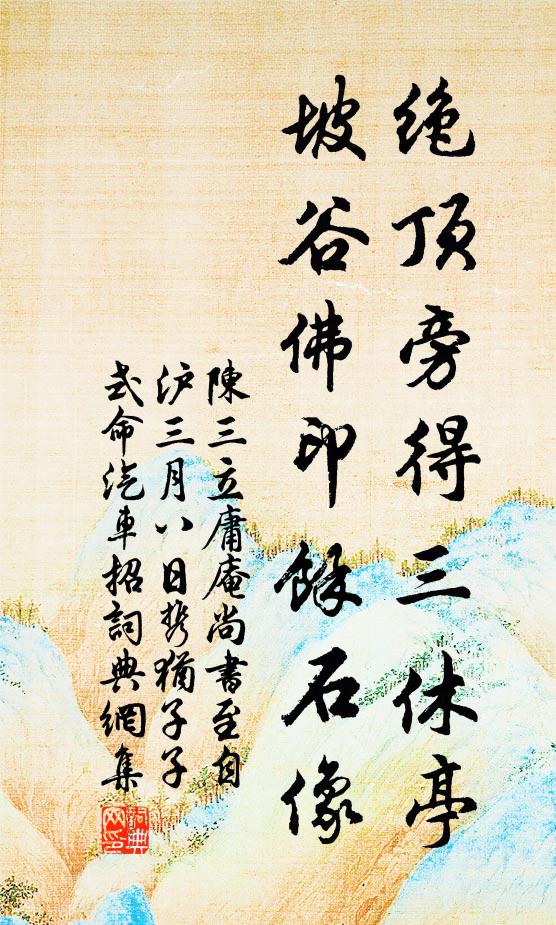 绝顶旁得三休亭
坡谷佛印馀石像
陳三立庸庵尚書至自
沪三月八日携猶子子
式命汽車招詞典網集
詞典网印